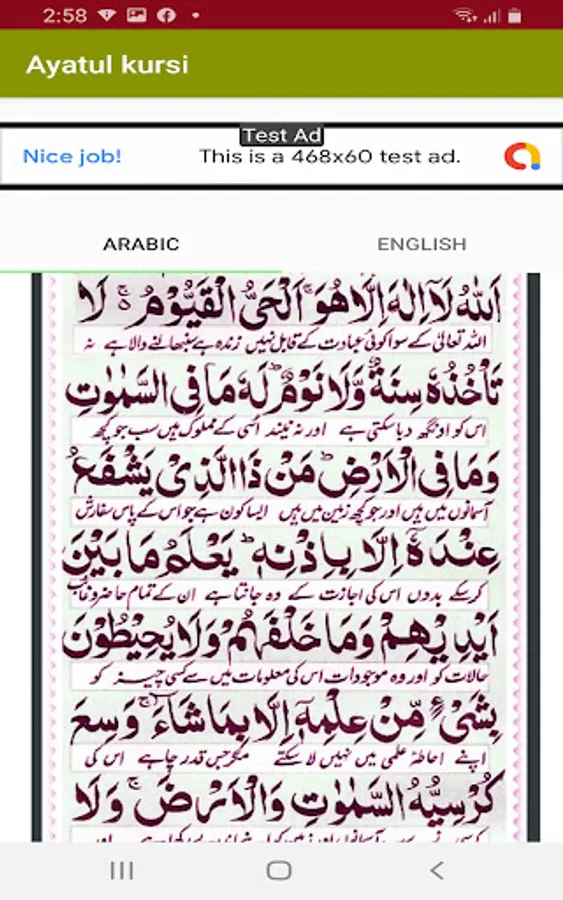 2:58
Ayatul kursi
Test Ad
Nice job!
This is a 468x60 test ad.
ARABIC
ENGLISH
اَللّٰهُ لَاۤ اِلٰهَ اِلَّا هُوَ ۚ اَلْحَیُّ الْقَیُّوْمُ ۚ۬ لَا
اللہ تعالیٰ کے سوا کوئی عبادت کے قابل نہیں زندہ ہے سنبھالنے والا ہے نہ
تَاْخُذُهٗ سِنَةٌ وَّلَا نَوْمٌ ؕ لَهٗ مَا فِی السَّمٰوٰتِ
اس کو اونگھ دبا سکتی ہے اور نہ نیند اسی کے مملوک ہیں سب جو کچھ
وَمَا فِی الْاَرْضِ ؕ مَنْ ذَا الَّذِیْ یَشْفَعُ
آسمانوں میں ہیں اور جو کچھ زمین میں ہیں ایسا کون ہے جو اس کے پاس سفارش
عِنْدَهٗۤ اِلَّا بِاِذْنِهٖ ؕ یَعْلَمُ مَا بَیْنَ
کر سکے بدوں اس کی اجازت کے وہ جانتا ہے ان کے تمام حاضر و غائب
اَیْدِیْهِمْ وَمَا خَلْفَهُمْ ۚ وَلَا یُحِیْطُوْنَ
حالات کو اور وہ موجودات اس کی معلومات میں سے کسی چیز کو
بِشَیْءٍ مِّنْ عِلْمِهٖۤ اِلَّا بِمَا شَآءَ ۚ وَسِعَ
اپنے احاطۂ علمی میں نہیں لا سکتے مگر جس قدر چاہے اس کی
كُرْسِیُّهُ السَّمٰوٰتِ وَالْاَرْضَ ۚ وَلَا